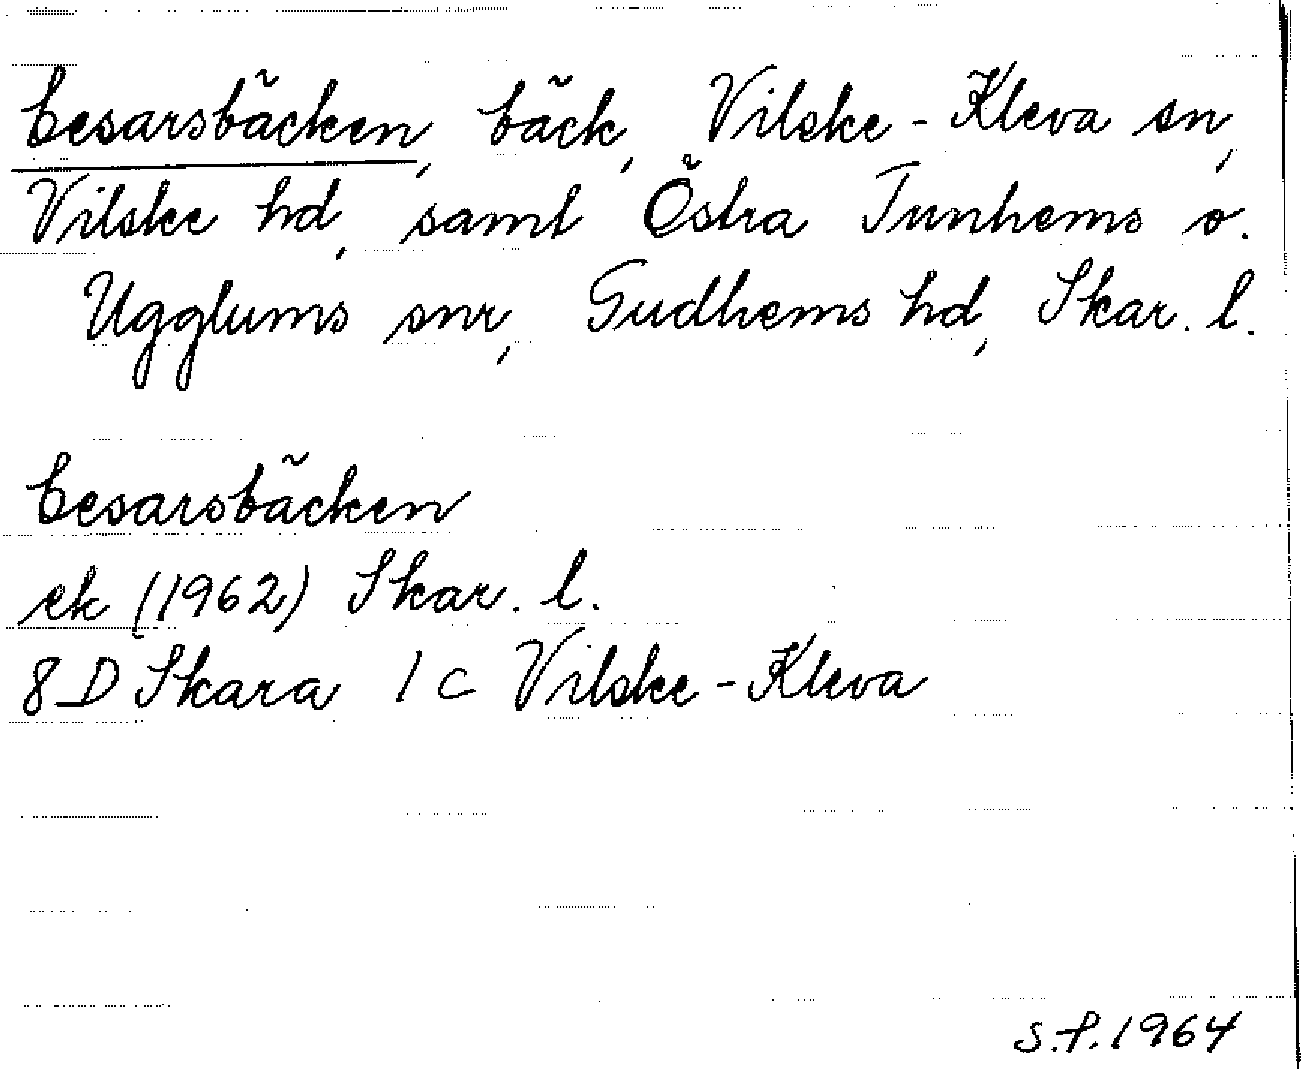 Cesarsbäcken, bäck, Vilske-Kleva sn,
Vilske hd, samt Östra Tunhems o.
Ugglums snr, Gudhems hd, Skar. l.
Cesarsbäcken
ek (1962) Skar. l.
8 D Skara 1 c Vilske-Kleva
S.P. 1964